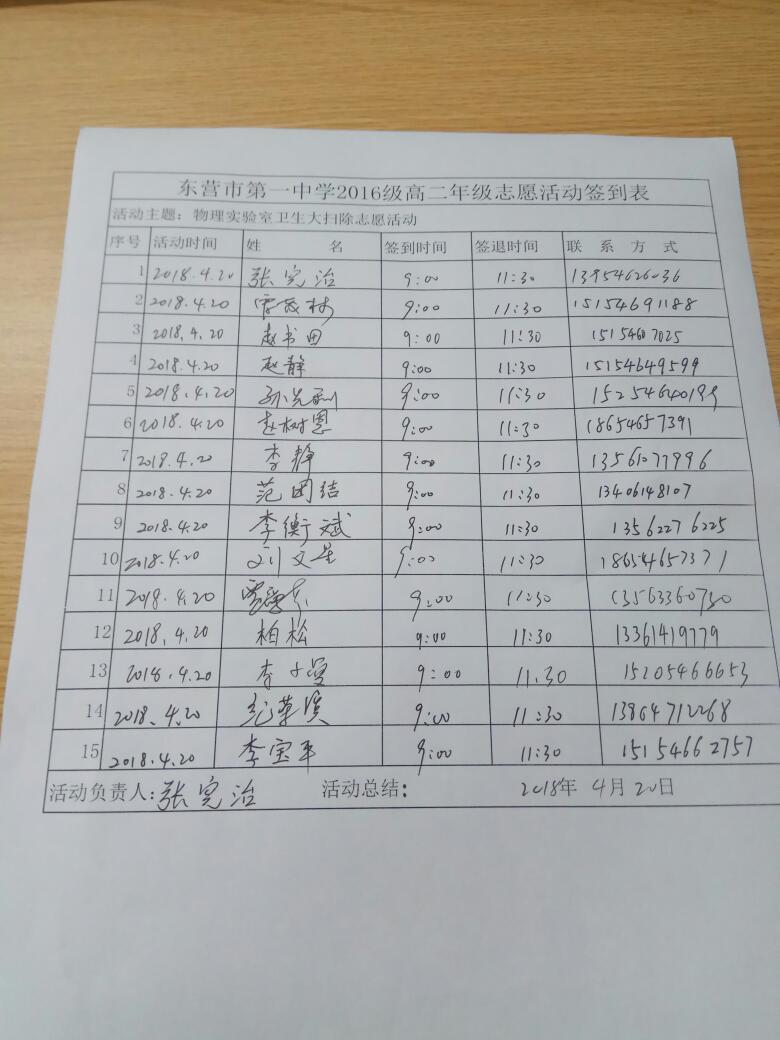 东营市第一中学2016级高二年级志愿活动签到表
活动主题：物理实验室卫生大扫除志愿活动
序号 活动时间 姓 名 签到时间 签退时间 联 系 方 式
1 2018.4.20 张完治 9:00 11:30 13954626036
2 2018.4.20 9:00 11:30 15154691188
3 2018.4.20 赵书田 9:00 11:30 15154607025
4 2018.4.20 赵静 9:00 11:30 15154649599
5 2018.4.20 9:00 11:30
6 2018.4.20 赵树恩 9:00 11:30 18654657391
7 2018.4.20 李静 9:00 11:30 13561077996
8 2018.4.20 范团结 9:00 11:30 13406148107
9 2018.4.20 李衡斌 9:00 11:30 13562276225
10 2018.4.20 刘文星 9:00 11:30 18654657371
11 2018.4.20 9:00 11:30 13563360730
12 2018.4.20 柏松 9:00 11:30 13361419779
13 2018.4.20 9:00 11.30 15205466653
14 2018.4.20 9:00 11:30 13864712268
15 2018.4.20 李宝平 9:00 11:30 15154662757
活动负责人：张完治 活动总结： 2018年 4月 20日